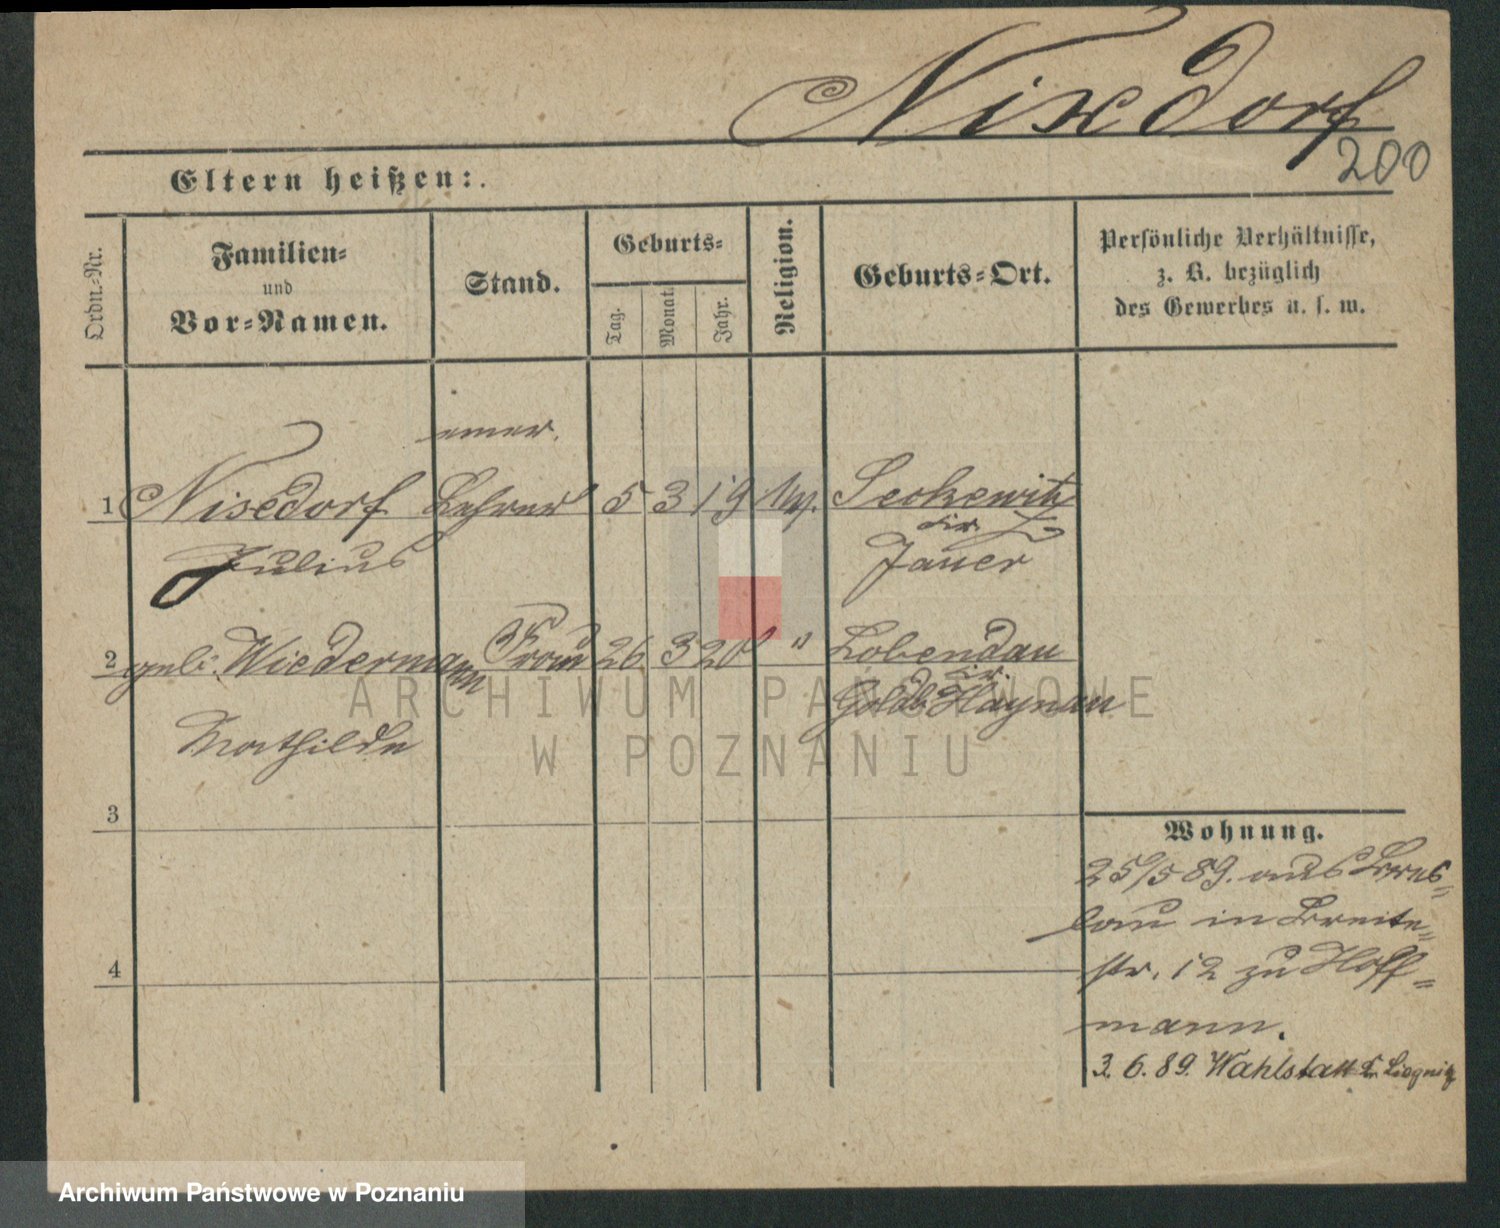 Nixdorf
200
Eltern heißen:
Ordn.-Nr.
Familien-
und
Vor-Namen.
Stand.
Geburts-
Tag.
Monat.
Jahr.
Religion.
Geburts-Ort.
Persönliche Verhältnisse,
z. B. bezüglich
des Gewerbes u. s. w.
emer.
1 Nixdorf Lehrer 5 3 19 Seckewitz
Kr.
Julius Jauer
2 geb: Wiedermann Frau 26 3 20 " Lobendau
Kr.
Goldb. Haynau
Mathilde
3
Wohnung.
25/5 89. aus Bres-
lau in Breite-
4
str. 12 zu Hoff-
mann.
3. 6. 89. Wahlstatt Kr. Liegnitz
ARCHIWUM PAŃSTWOWE
W POZNANIU
Archiwum Państwowe w Poznaniu